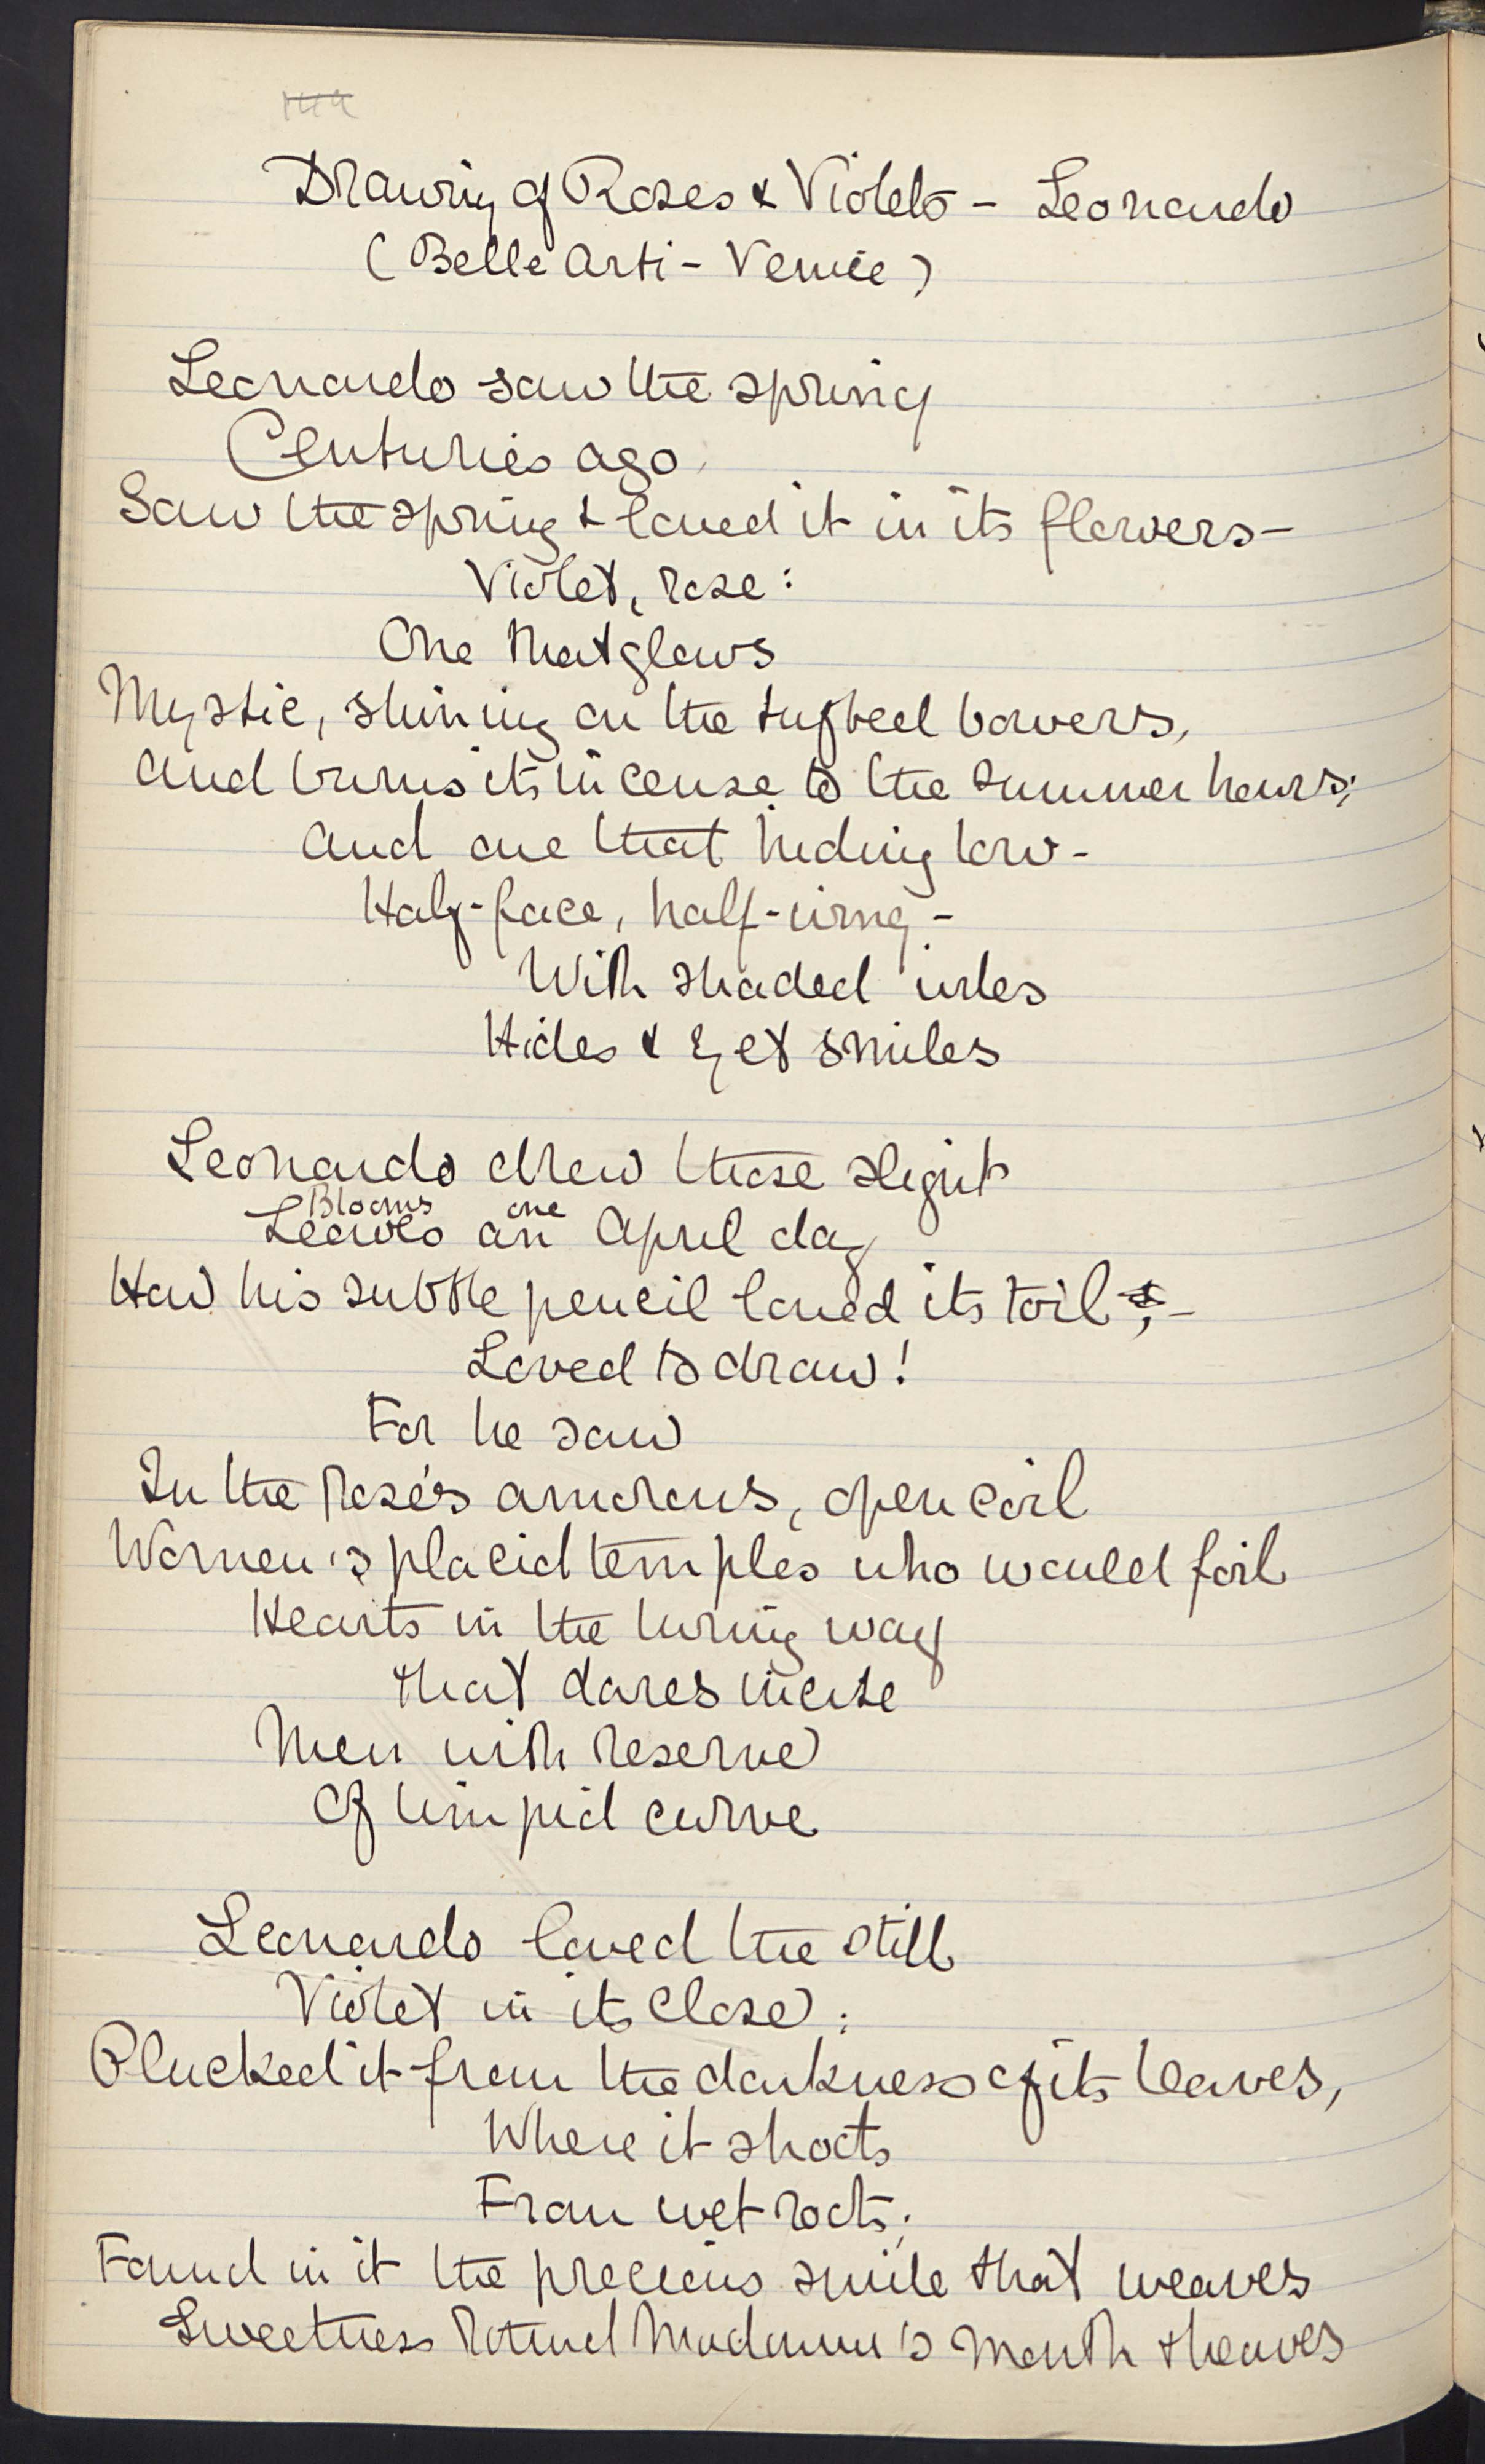 Drawing of Roses & Violets - Leonardo
(Belle Arti - Venice)
Leonardo saw the spring
Centuries ago,
Saw the spring & loved it in its flowers -
Violet, rose:
One that glows
Mystic, shining on the tufted bowers,
And burns its incense to the summer hours;
And one that hiding low -
Half-face, half-wing -
With shaded wiles
Hides & yet smiles
Leonardo drew these slight
Blooms one
Leaves an April day
How his subtle pencil loved its toil, -
Loved to draw!
For he saw
In the rose's amorous, open coil
Women's placid temples who would foil
Hearts in the luring way
that dares incite
Men with reserve
Of limpid curve
Leonardo loved the still
Violet in its close:
Plucked it from the darkness of its leaves,
Where it shoots
From wet roots;
Found in it the precious smile that weaves
Sweetness round Madonna's mouth & heaves